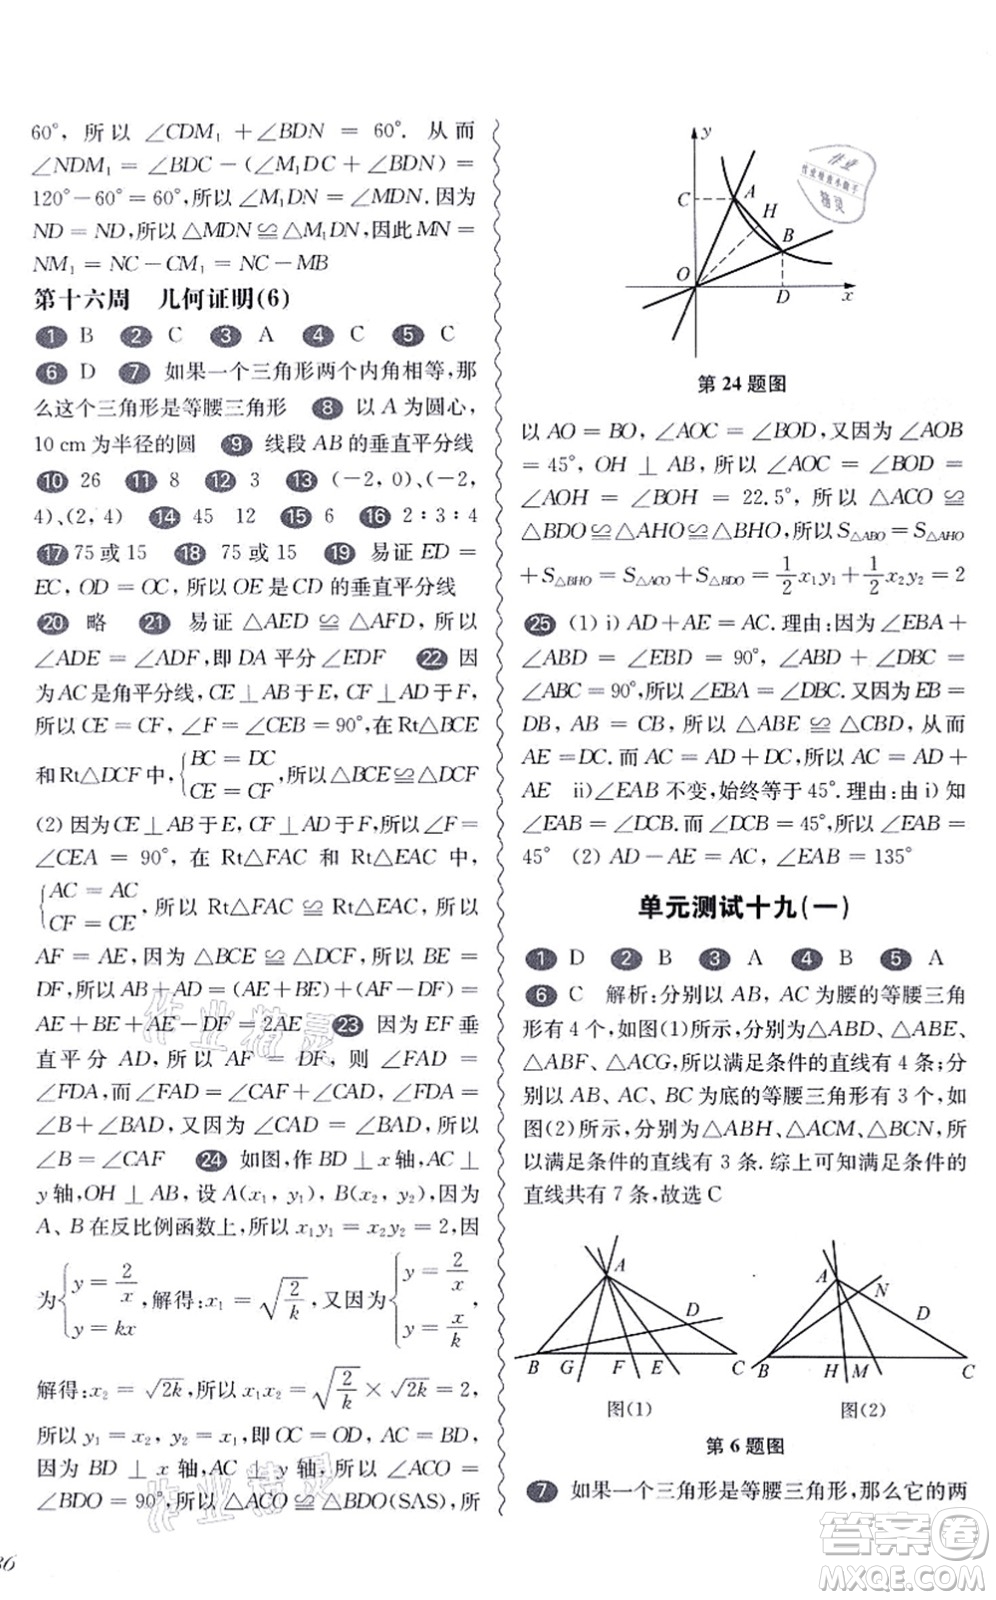 60°，所以 ∠CDM₁ + ∠BDN = 60°. 从而
∠NDM₁ = ∠BDC − (∠M₁DC + ∠BDN) =
120° − 60° = 60°,所以 ∠M₁DN = ∠MDN.因为
ND = ND,所以 △MDN ≌ △M₁DN,因此 MN =
NM₁ = NC − CM₁ = NC − MB
第十六周 几何证明(6)
1 B 2 C 3 A 4 C 5 C
6 D 7 如果一个三角形两个内角相等,那
么这个三角形是等腰三角形 8 以 A 为圆心,
10 cm 为半径的圆 9 线段 AB 的垂直平分线
10 26 11 8 12 3 13 (−2, 0)、(−2,
4)、(2, 4) 14 45 12 15 6 16 2 : 3 : 4
17 75 或 15 18 75 或 15 19 易证 ED =
EC, OD = OC, 所以 OE 是 CD 的垂直平分线
20 略 21 易证 △AED ≌ △AFD, 所以
∠ADE = ∠ADF,即 DA 平分 ∠EDF 22 因
为 AC 是角平分线, CE ⊥ AB 于 E, CF ⊥ AD 于 F,
所以 CE = CF, ∠F = ∠CEB = 90°,在 Rt△BCE
和 Rt△DCF 中, {BC = DC, CE = CF, 所以 △BCE ≌ △DCF
(2) 因为 CE ⊥ AB 于 E, CF ⊥ AD 于 F,所以 ∠F =
∠CEA = 90°, 在 Rt△FAC 和 Rt△EAC 中,
{AC = AC, CF = CE, 所以 Rt△FAC ≌ Rt△EAC, 所以
AF = AE, 因为 △BCE ≌ △DCF, 所以 BE =
DF,所以 AB + AD = (AE + BE) + (AF − DF) =
AE + BE + AE − DF = 2AE 23 因为 EF 垂
直平分 AD, 所以 AF = DF, 则 ∠FAD =
∠FDA,而 ∠FAD = ∠CAF + ∠CAD, ∠FDA =
∠B + ∠BAD, 又因为 ∠CAD = ∠BAD, 所以
∠B = ∠CAF 24 如图,作 BD ⊥ x 轴, AC ⊥
y 轴,OH ⊥ AB, 设 A(x₁, y₁), B(x₂, y₂),因为
A、B 在反比例函数上,所以 x₁y₁ = x₂y₂ = 2,因
为{y = 2/x, y = kx, 解得: x₁ = √(2/k), 又因为{y = 2/x, y = x/k,
解得: x₂ = √2k,所以 x₁x₂ = √(2/k) × √2k = 2,
所以 y₁ = x₂, y₂ = x₁,即 OC = OD, AC = BD,因为
BD ⊥ x 轴, AC ⊥ y 轴,所以 ∠ACO =
∠BDO = 90°,所以 △ACO ≌ △BDO(SAS),所
36
y
C A
H
B
O
D x
第 24 题图
以 AO = BO, ∠AOC = ∠BOD, 又因为 ∠AOB
= 45°, OH ⊥ AB, 所以 ∠AOC = ∠BOD =
∠AOH = ∠BOH = 22.5°, 所以 △ACO ≌
△BDO ≌ △AHO ≌ △BHO,所以 S△ABO = S△AHO
+ S△BHO = S△ACO + S△BDO = 1/2 x₁y₁ + 1/2 x₂y₂ = 2
25 (1) i) AD + AE = AC. 理由:因为 ∠EBA +
∠ABD = ∠EBD = 90°, ∠ABD + ∠DBC =
∠ABC = 90°,所以 ∠EBA = ∠DBC. 又因为 EB =
DB, AB = CB, 所以 △ABE ≌ △CBD, 从而
AE = DC. 而 AC = AD + DC, 所以 AC = AD +
AE ii) ∠EAB 不变,始终等于 45°.理由:由 i) 知
∠EAB = ∠DCB. 而 ∠DCB = 45°,所以 ∠EAB =
45° (2) AD − AE = AC, ∠EAB = 135°
单元测试十九(一)
1 D 2 B 3 A 4 B 5 A
6 C 解析:分别以 AB, AC 为腰的等腰三角
形有 4 个, 如图(1)所示,分别为 △ABD、△ABE、
△ABF、△ACG,所以满足条件的直线有 4 条;分
别以 AB、AC、BC 为底的等腰三角形有 3 个, 如
图(2)所示,分别为 △ABH、△ACM、△BCN,所
以满足条件的直线有 3 条. 综上可知满足条件的
直线共有 7 条, 故选 C
A
D
B G F E C
图(1)
A N
D
B H M C
图(2)
第 6 题图
7 如果一个三角形是等腰三角形,那么它的两
作业精灵
作业精灵
答案圈
MXQE.COM